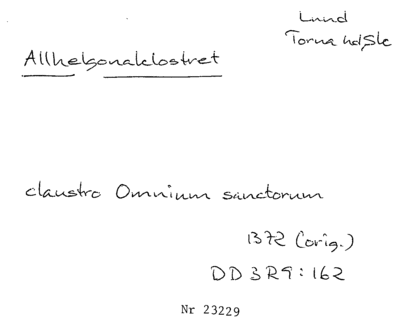 Lund
Torna hd, Sk
Allhelgonaklostret
claustro Omnium sanctorum
1372 (orig.)
DD3R9:162
Nr 23229